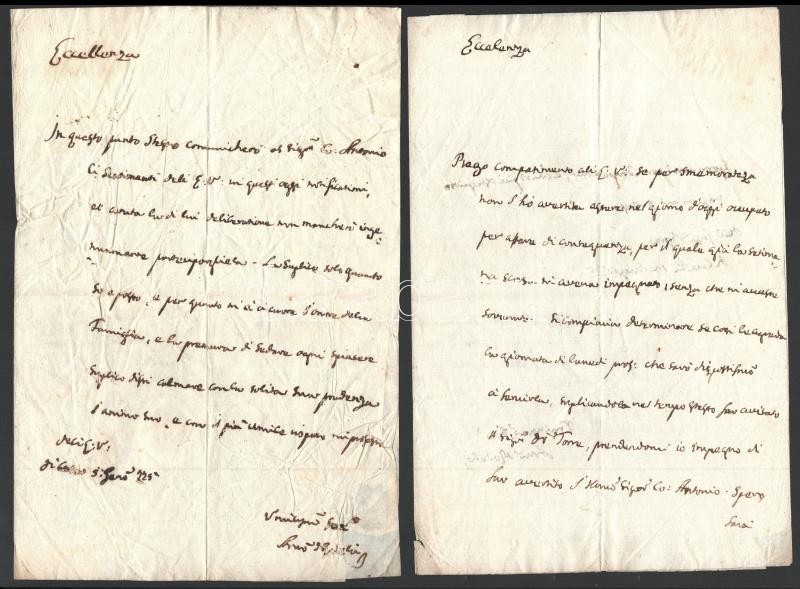 Eccellenza
In questo punto stesso comunicherò al Sigr. Co: Antonio
li sentimenti dell E: V: in quest oggi notificatimi,
et avuta la di lui deliberatione non mancherò
La suplico solo quanto
so e posso, e per quanto mi è a cuore l'onore della
Famiglia, e la premura di sedare ogni spiacere
suplico di calmare con la solita sua prudenza
l'animo suo, e con il più umile
dell E: V:
di Casa 5: Genro
Eccelenza
Prego compatimento all E: V: se per smemoratezza
non l'hò avertita essere nel giorno d'oggi ocupato
per affare di conseguenza, per il quale già la setima
na scorsa mi aveva impegnato, senza che mi avesse
Si compiacia determinare se così le agrada
la giornata di lunedì pros: che sarò dispostissimo
a servirla, suplicandola nel tempo stesso far avisato
il Sigr. Di Torre, prendendomi io impegno di
far avertito l' Sigr. Co: Antonio. Spero
sarà